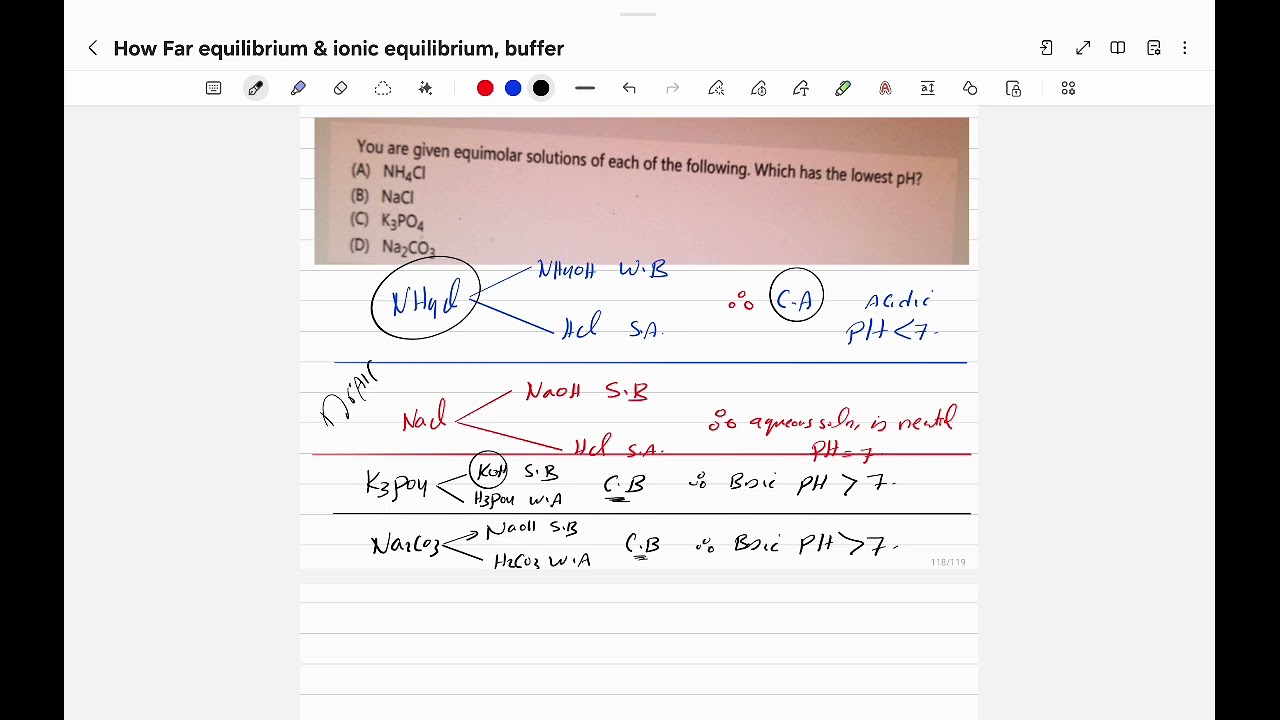 How Far equilibrium & ionic equilibrium, buffer
You are given equimolar solutions of each of the following. Which has the lowest pH?
(A) NH4Cl
(B) NaCl
(C) K3PO4
(D) Na2CO3
NH4OH W.B
NH4Cl ∴ C.A Acidic
HCl S.A. PH<7.
NaOH S.B
NaCl ∴ aqueous soln, is neutral
HCl S.A. PH=7
KOH S.B
K3PO4 C.B ∴ Basic PH > 7.
H3PO4 W.A
NaOH S.B
Na2CO3 C.B ∴ Basic PH > 7.
H2CO3 W.A
118/119